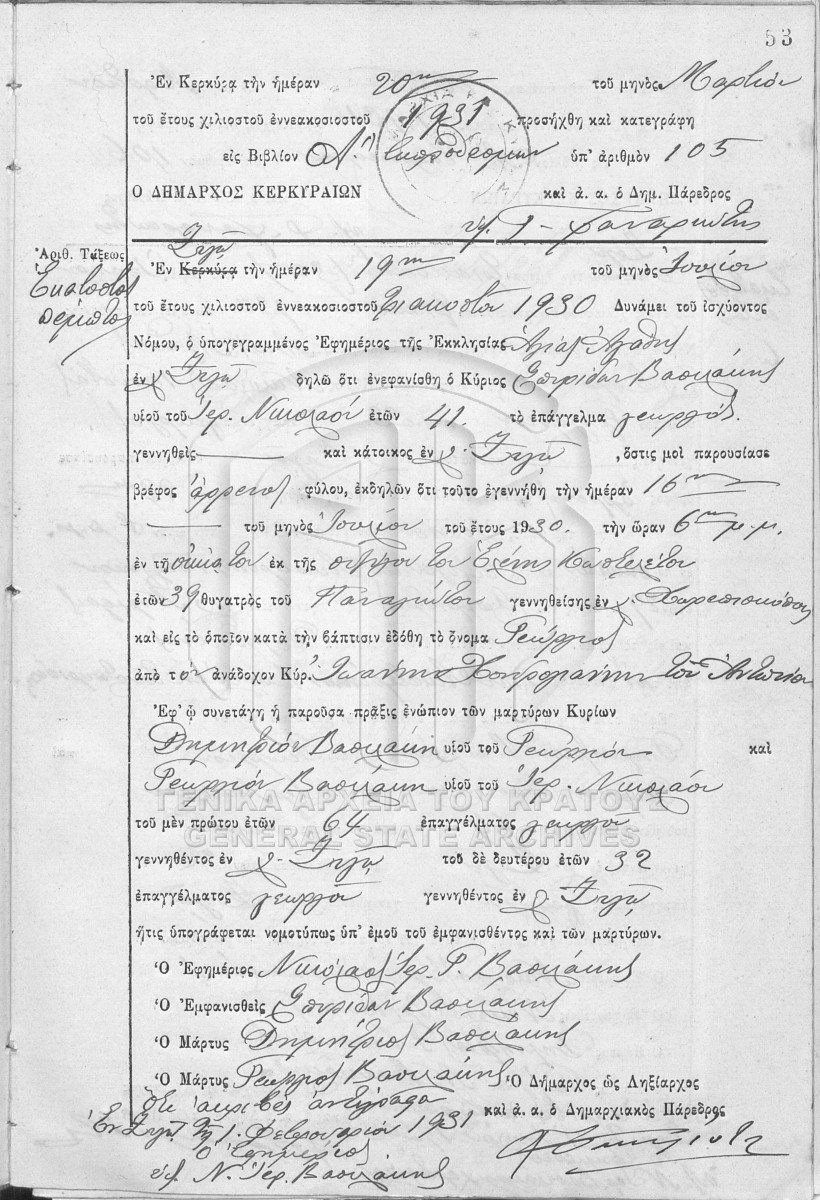 53
Ἐν Κερκύρᾳ τὴν ἡμέραν 20ην τοῦ μηνὸς Μαρτίου
τοῦ ἔτους χιλιοστοῦ ἐννεακοσιοστοῦ 1931 προσήχθη καὶ κατεγράφη
εἰς Βιβλίον Α. ὑπ' ἀριθμὸν 105
Ο ΔΗΜΑΡΧΟΣ ΚΕΡΚΥΡΑΙΩΝ καὶ ἀ. α. ὁ Δημ. Πάρεδρος
Ζυγῷ
Ἀριθ. Τάξεως
Ἑκατοστὸς
πέμπτος
Ἐν Κερκύρᾳ τὴν ἡμέραν 19ην τοῦ μηνὸς Ἰουλίου
τοῦ ἔτους χιλιοστοῦ ἐννεακοσιοστοῦ τριακοστοῦ 1930 Δυνάμει τοῦ ἰσχύοντος
Νόμου, ὁ ὑπογεγραμμένος Ἐφημέριος τῆς Ἐκκλησίας Ἁγίας Ἀγάθης
ἐν χ. Ζυγῷ δηλῶ ὅτι ἐνεφανίσθη ὁ Κύριος Σπυρίδων Βασιλάκης
υἱοῦ τοῦ Ἱερ. Νικολάου ἐτῶν 41. τὸ ἐπάγγελμα γεωργός.
γεννηθεὶς καὶ κάτοικος ἐν χ. Ζυγῷ, ὅστις μοὶ παρουσίασε
βρέφος ἄρρενος φύλου, ἐκδηλῶν ὅτι τοῦτο ἐγεννήθη τὴν ἡμέραν 16ην
τοῦ μηνὸς Ἰουλίου τοῦ ἔτους 1930. τὴν ὥραν 6ην μ.μ.
ἐν τῇ οἰκίᾳ του ἐκ τῆς συζύγου του Ἑλένης Καστελέτου
ἐτῶν 39 θυγατρὸς τοῦ Παναγιώτου γεννηθείσης ἐν χ. Χωρεπισκόπους
καὶ εἰς τὸ ὁποῖον κατὰ τὴν βάπτισιν ἐδόθη τὸ ὄνομα Γεώργιος
ἀπὸ τὸν ἀνάδοχον Κύρ. Ἰωάννην Χονδρογιάννην τοῦ Ἀντωνίου
Ἐφ' ᾧ συνετάγη ἡ παροῦσα πρᾶξις ἐνώπιον τῶν μαρτύρων Κυρίων
Δημητρίου Βασιλάκη υἱοῦ τοῦ Γεωργίου καὶ
Γεωργίου Βασιλάκη υἱοῦ τοῦ Ἱερ. Νικολάου
ΓΕΝΙΚΑ ΑΡΧΕΙΑ ΤΟΥ ΚΡΑΤΟΥΣ
τοῦ μὲν πρώτου ἐτῶν 64 ἐπαγγέλματος γεωργοῦ
GENERAL STATE ARCHIVES
γεννηθέντος ἐν χ. Ζυγῷ τοῦ δὲ δευτέρου ἐτῶν 32
ἐπαγγέλματος γεωργοῦ γεννηθέντος ἐν χ. Ζυγῷ
ἥτις ὑπογράφεται νομοτύπως ὑπ' ἐμοῦ τοῦ ἐμφανισθέντος καὶ τῶν μαρτύρων.
Ὁ Ἐφημέριος Νικόλαος Ἱερ. Γ. Βασιλάκης
Ὁ Ἐμφανισθεὶς Σπυρίδων Βασιλάκης
Ὁ Μάρτυς Δημήτριος Βασιλάκης
Ὁ Μάρτυς Γεώργιος Βασιλάκης Ὁ Δήμαρχος ὡς Ληξίαρχος
Ὅτι ἀκριβὲς ἀντίγραφον καὶ ἀ. α. ὁ Δημαρχιακὸς Πάρεδρος
Ἐν Ζυγῷ τῇ 1 Φεβρουαρίου 1931
Ὁ Ἐφημέριος
Ν. Ἱερ. Βασιλάκης